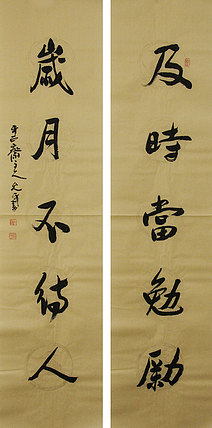 及時當勉勵
歲月不待人